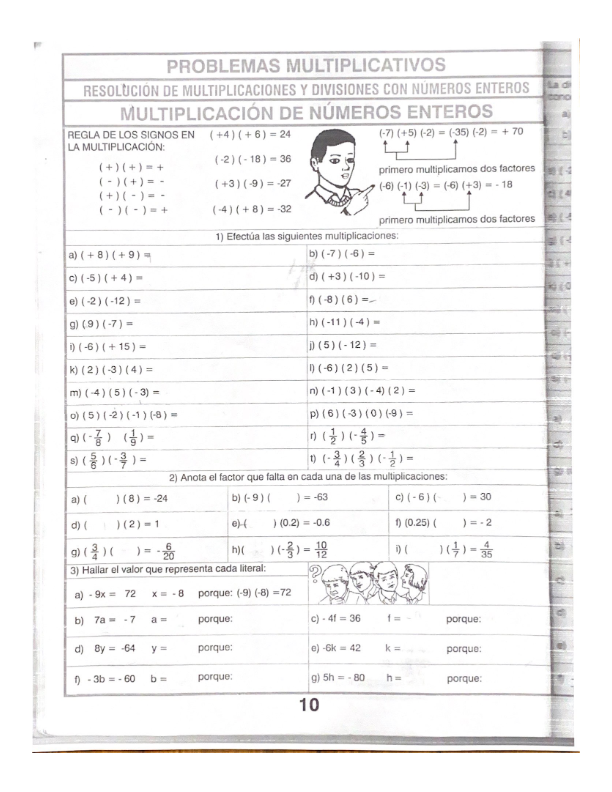 PROBLEMAS MULTIPLICATIVOS
RESOLUCIÓN DE MULTIPLICACIONES Y DIVISIONES CON NUMEROS ENTEROS
MULTIPLICACIÓN DE NÚMEROS ENTEROS
REGLA DE LOS SIGNOS EN LA MULTIPLICACIÓN:
( + ) ( + ) = +
( - ) ( + ) = -
( + ) ( - ) = -
( - ) ( - ) = +
( +4 ) ( + 6 ) = 24
( -2 ) ( - 18 ) = 36
( +3 ) ( -9 ) = -27
( -4 ) ( + 8 ) = -32
(-7) (+5) (-2) = (-35) (-2) = + 70
primero multiplicamos dos factores
(-6) (-1) (-3) = (-6) (+3) = - 18
primero multiplicamos dos factores
1) Efectúa las siguientes multiplicaciones:
a) ( + 8 ) ( + 9 ) =
b) ( -7 ) ( -6 ) =
c) ( -5 ) ( + 4 ) =
d) ( +3 ) ( -10 ) =
e) ( -2 ) ( -12 ) =
f) ( -8 ) ( 6 ) =
g) ( 9 ) ( -7 ) =
h) ( -11 ) ( -4 ) =
i) ( -6 ) ( + 15 ) =
j) ( 5 ) ( - 12 ) =
k) ( 2 ) ( -3 ) ( 4 ) =
l) ( -6 ) ( 2 ) ( 5 ) =
m) ( -4 ) ( 5 ) ( - 3) =
n) ( -1 ) ( 3 ) ( - 4) ( 2 ) =
o) ( 5 ) ( -2 ) ( -1 ) (-8 ) =
p) ( 6 ) ( -3 ) ( 0 ) (-9 ) =
q) ( - 7/8 ) ( 1/9 ) =
r) ( 1/2 ) ( - 4/5 ) =
s) ( 5/6 ) ( - 3/7 ) =
t) ( - 3/4 ) ( 2/3 ) ( - 1/2 ) =
2) Anota el factor que falta en cada una de las multiplicaciones:
a) ( ) ( 8 ) = -24
b) ( - 9 ) ( ) = -63
c) ( - 6 ) ( ) = 30
d) ( ) ( 2 ) = 1
e) ( ) (0.2) = -0.6
f) (0.25) ( ) = - 2
g) ( 3/4 ) ( ) = - 6/20
h)( ) (- 2/3 ) = 10/12
i) ( ) ( 1/7 ) = 4/35
3) Hallar el valor que representa cada literal:
a) - 9x = 72 x = - 8 porque: (-9) (-8) =72
b) 7a = - 7 a = porque:
c) - 4f = 36 f = porque:
d) 8y = -64 y = porque:
e) -6k = 42 k = porque:
f) - 3b = - 60 b = porque:
g) 5h = - 80 h = porque:
10